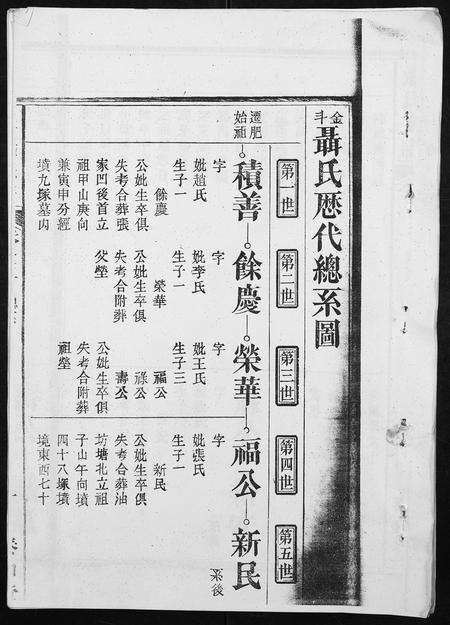 金斗
聶氏歷代總系圖
第一世
第二世
第三世
第四世
第五世
遷肥始祖
積善
餘慶
榮華
福公
新民
系後
字
妣趙氏
生子一
餘慶
公妣生卒俱
失考合葬張
家凹後首立
祖甲山庚向
兼寅申分經
墳九塚墓内
字
妣李氏
生子一
榮華
公妣生卒俱
失考合附葬
父塋
字
妣王氏
生子三
福公
祿公
壽公
公妣生卒俱
失考合附葬
祖塋
字
妣張氏
生子一
新民
公妣生卒俱
失考合葬油
坊塘北立祖
子山午向墳
四十八塚墳
境東西七十